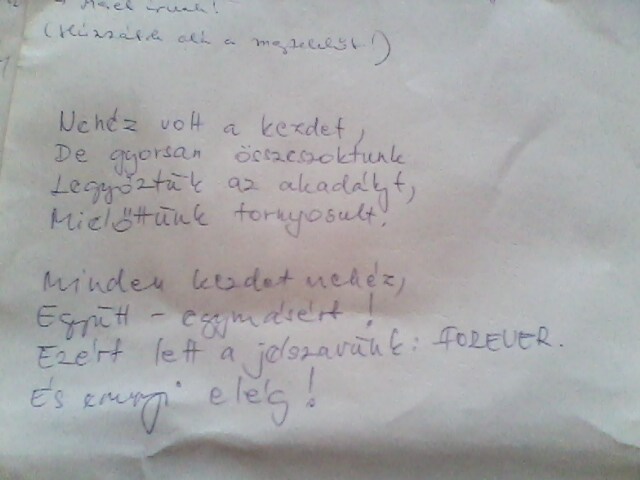 (Húzzátok alá a megfelelőt!)
Nehéz volt a kezdet,
De gyorsan összeszoktunk
Legyőztük az akadályt,
Mielőttünk tornyosult.
Minden kezdet nehéz,
Együtt - egymásért!
Ezért lett a jelszavunk: FOREVER.
És ennyi elég!